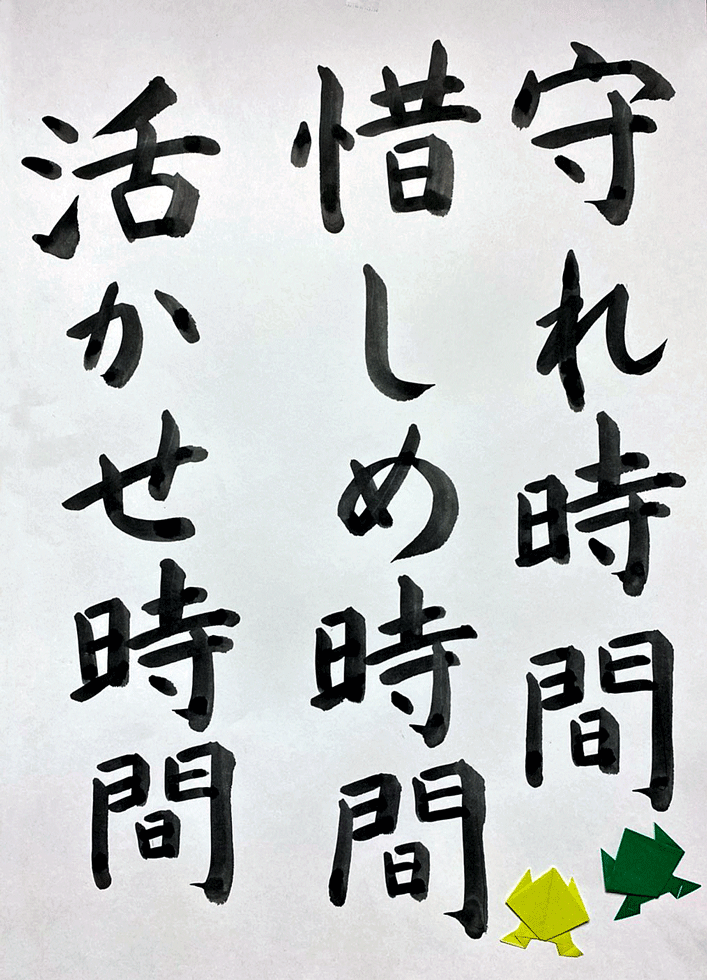 守れ時間
惜しめ時間
活かせ時間